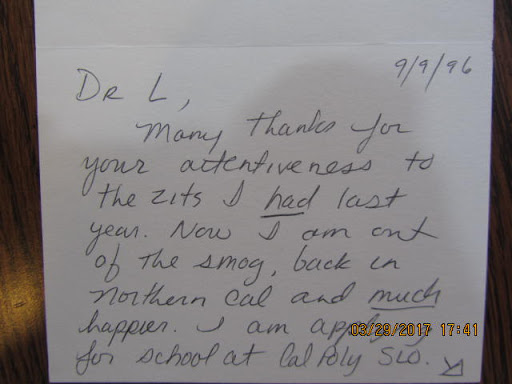 9/9/96
Dr L,
Many thanks for
your attentiveness to
the zits I had last
year. Now I am out
of the smog, back in
northern Cal and much
happier. I am applying
03/29/2017 17:41
for school at Cal Poly SLO.